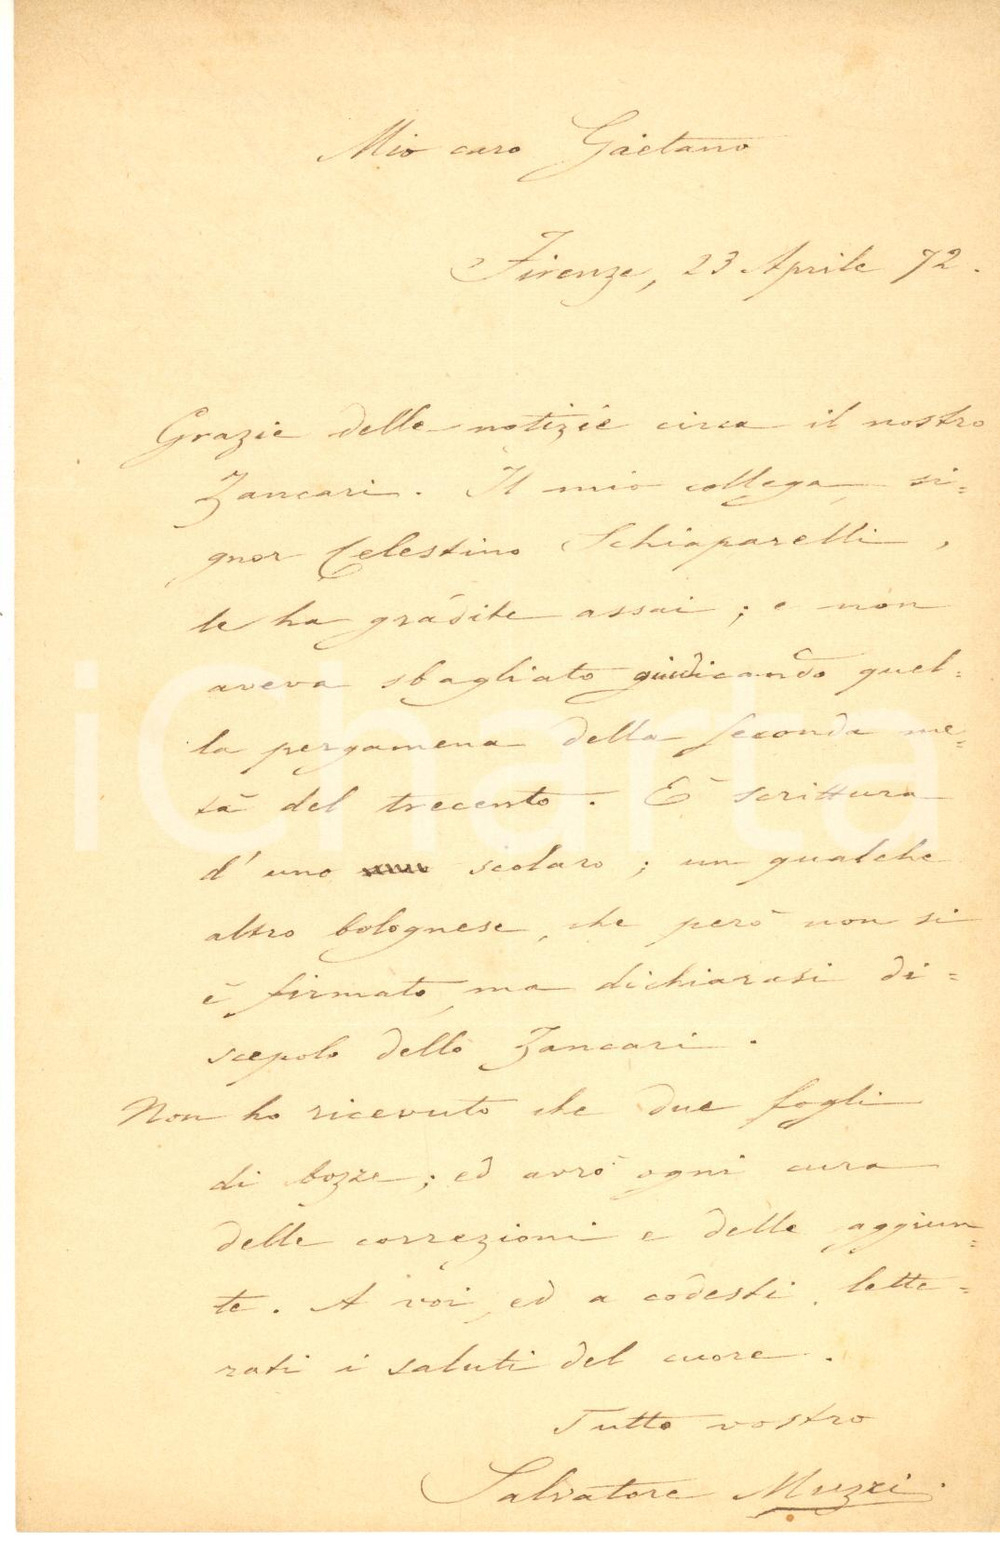 Mio caro Gaetano
Firenze, 23 Aprile 72.
Grazie delle notizie circa il nostro
Zancari. Il mio collega, si=
gnor Celestino Schiaparelli,
le ha gradite assai; e non
aveva sbagliato giudicando quel=
la pergamena della seconda me=
tà del trecento. È scrittura
d'uno scolaro; un qualche
altro bolognese, che però non si
è firmato, ma dichiarasi di=
scepolo dello Zancari.
Non ho ricevuto che due fogli
di bozze; ed avrò ogni cura
delle correzioni e delle aggiun=
te. A voi, ed a codesti lette=
rati i saluti del cuore.
Tutto vostro
Salvatore Muzzi.
iCharta